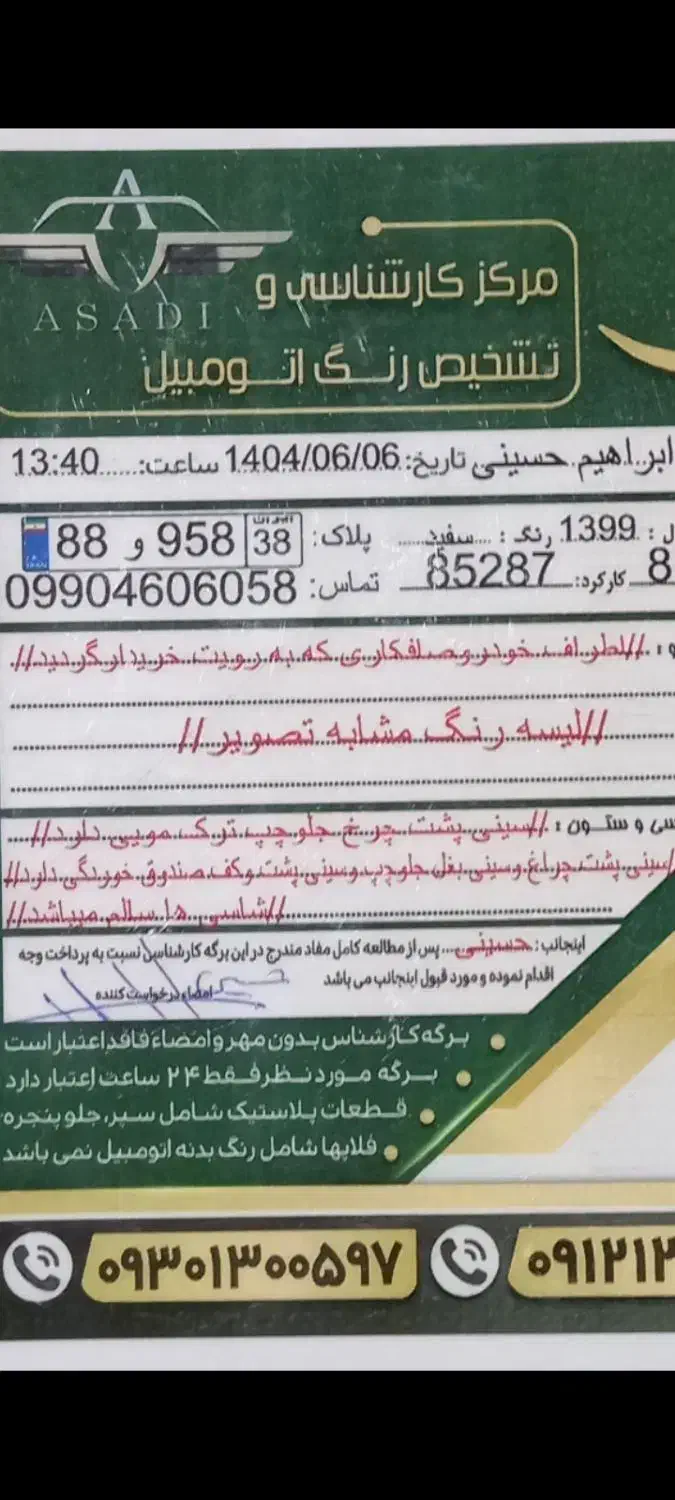 ASADI
مرکز کارشناسی و
تشخیص رنگ اتومبیل
ابراهیم حسینی تاریخ: 1404/06/06 ساعت: 13:40
ل : 1399 رنگ : سفید پلاک: ایران 38 958 و 88
8 کارکرد: 85287 تماس: 09904606058
ه : //اطراف خودر وصافکاری که به رویت خریدار گردید//
//لیسه رنگ مشابه تصویر//
سی و ستون : //سینی پشت چرخ جلو چپ ترک مویی دارد//
سینی پشت چراغ وسینی بغل جلو چپ وسینی پشت وکف صندوق خوردگی دارد//
//شاسی ها سالم میباشد//
اینجانب: حسینی پس از مطالعه کامل مفاد مندرج در این برگه کارشناسی نسبت به پرداخت وجه
اقدام نموده و مورد قبول اینجانب می باشد
امضاء درخواست کننده
برگه کارشناس بدون مهر و امضاء فاقد اعتبار است
برگه مورد نظر فقط ۲۴ ساعت اعتبار دارد
قطعات پلاستیک شامل سپر، جلو پنجره
فلاپها شامل رنگ بدنه اتومبیل نمی باشد
۰۹۱۲۱۲ ۰۹۳۰۱۳۰۰۵۹۷